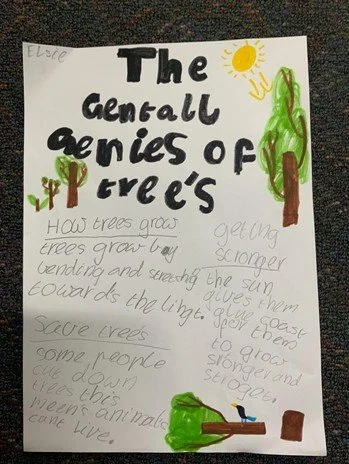 Elsie
The
Gentall
Genies of
tree's
How trees grow
trees grow bay
bending and streching
towards the lingt.
Save trees
some people
cut down
trees this
meen's animals
cant live.
getting
stronger
the sun
gives them
them
to grow
stronger and